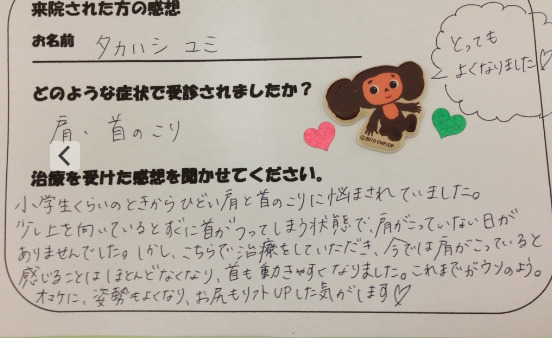 来院された方の感想
お名前 タカハシ ユミ
とっても
よくなりました♡
どのような症状で受診されましたか？
肩・首のこり
治療を受けた感想を聞かせてください。
小学生くらいのときからひどい肩と首のこりに悩まされていました。
少し上を向いているとすぐに首がつってしまう状態で、肩がこっていない日が
ありませんでした。しかし、こちらで治療をしていただき、今では肩がこっていると
感じることはほとんどなくなり、首も動きやすくなりました。これまでがウソのよう。
オマケに、姿勢もよくなり、お尻もリフトUPした気がします♡